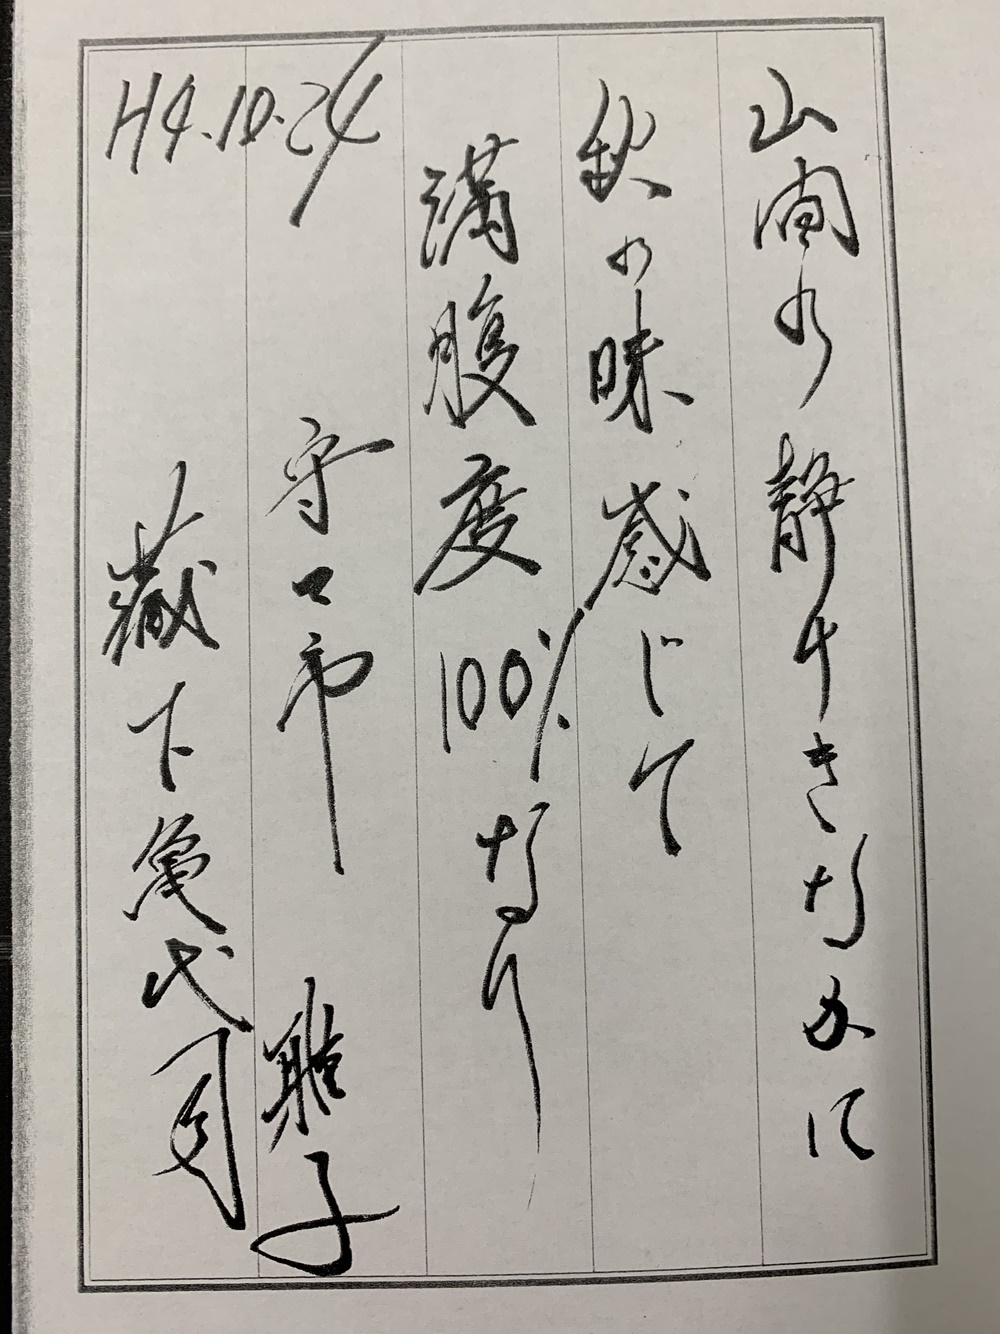 山間の静けきなかに
秋の味感じて
満腹度100%なり
H4.10.24
守口市 聡子
藏下亀代司